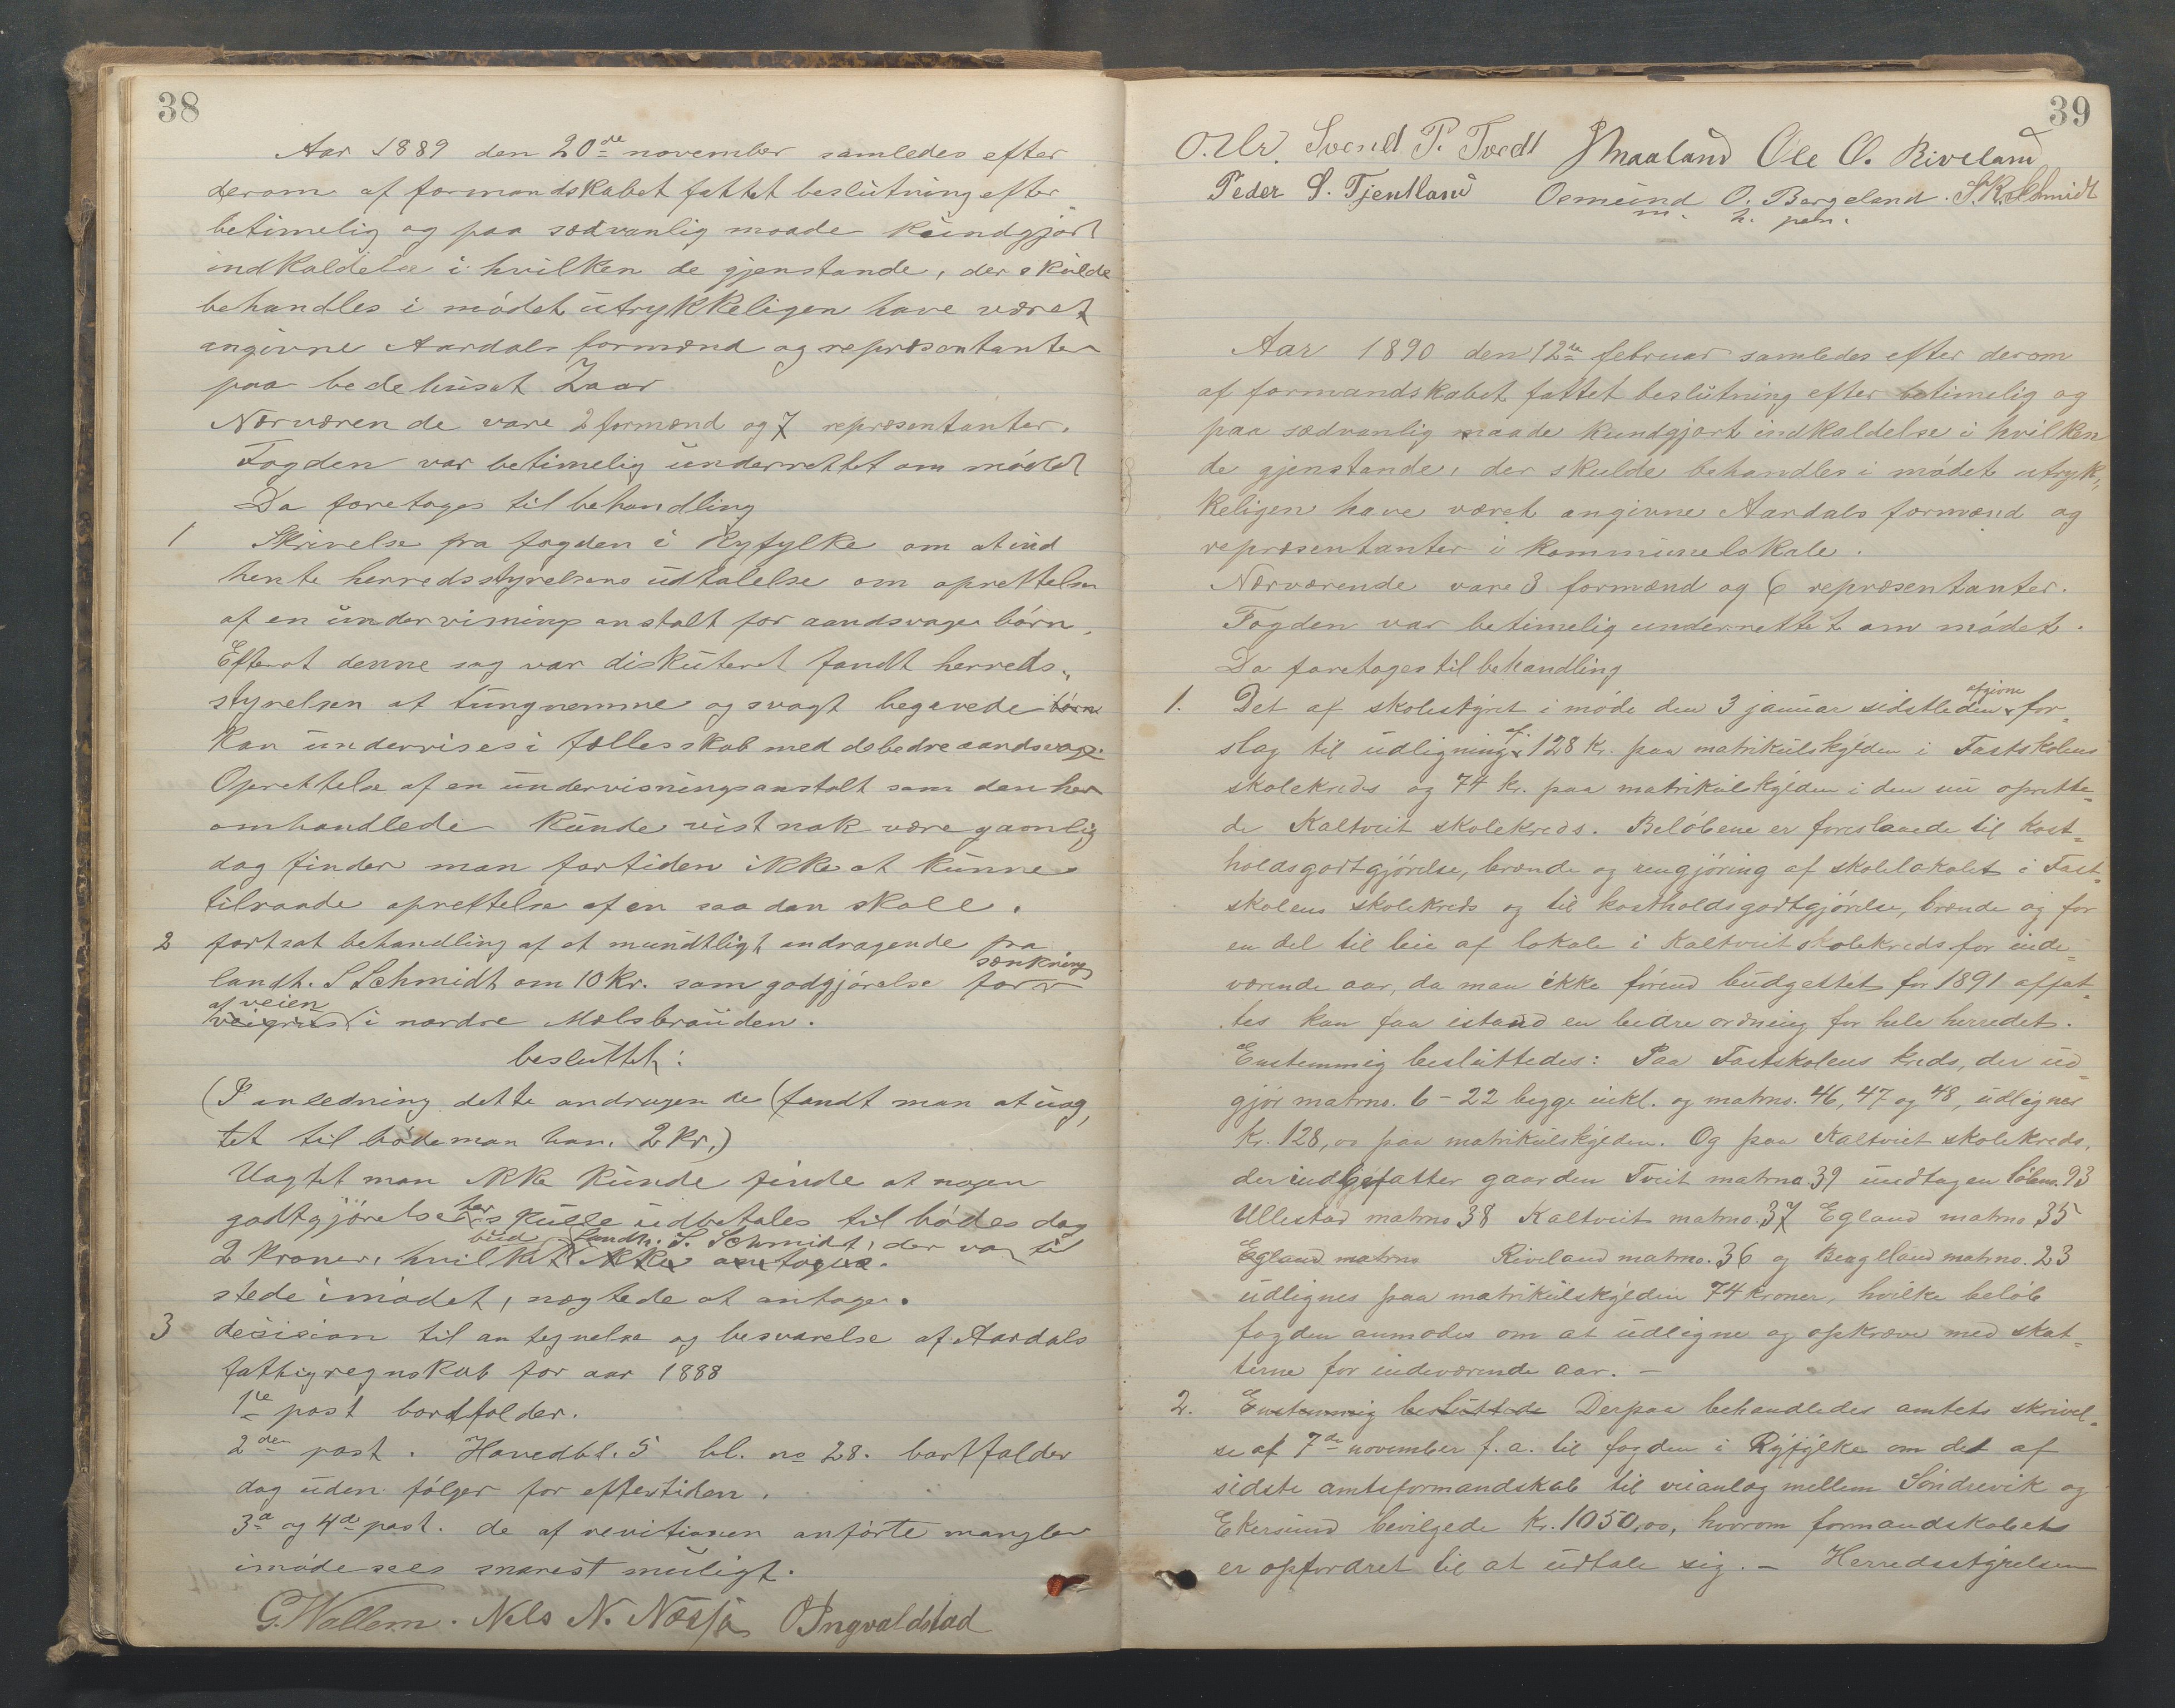 38
Aar 1889 den 20de november samledes efter
derom af formandskabet fattet beslutning efter
betimelig og paa sædvanlig maade kundgjort
indkaldelse i hvilken de gjenstande, der skulde
behandles i mødet utrykkeligen have været
angivne Aardals formænd og repræsentanter
paa bedehuset Zaar
Nærværende vare 2 formænd og 7 repræsentanter.
Fogden var betimelig underrettet om mødet
Da foretages til behandling
1 Skrivelse fra fogden i Ryfylke om at ind
hente herredsstyrelsens udtalelse om oprettelse
af en undervisningsanstalt for aandsvage børn,
Efterat denne sag var diskuteret fandt herreds-
styrelsen at tungnemme og svagt begavede børn
kan undervises i fællesskab med de bedre aandsvage.
Oprettelse af en undervisningsanstalt som den her
omhandlede kunde vistnok være gavnlig
dog finder man fortiden ikke at kunne
tilraade oprettelse af en saadan skole.
2 fortsat behandling af et mundtligt andragende fra
landh. S Schmidt om 10 kr. som godgjørelse for sænkning
af veien veigrus i nordre Mælsbrauden.
besluttet:
(I anledning dette andragende (fandt man at uag,
tet til bøde man han. 2 kr.)
Uagtet man ikke kunde finde at nogen
godtgjørelse her skulle udbetales til bødes dog
2 kroner, hvilket bud landh. S. Schmidt, der var til
ikke antoges.
stede i mødet, nægtede at antage.
3 desision til antegnelse og besvarelse af Aardals
fattigregnskab for aar 1888
1te post bortfalder.
2den post. Hovedbl. 5 bl. no 28. bortfalder
dog uden følger for eftertiden.
3die og 4de post. de af revisionen anførte mangler
imødesees snarest muligt.
G. Wallem. Nels N. Næsja O Ingvaldstad
39
O. Ur. Svend P. Tvedt J Maaland Ole O. Riveland
Peder S. Tjentland Osmund O. Bergeland. S. R. Schmidt
m. h. pen.
Aar 1890 den 12te februar samledes efter derom
af formandskabet fattet beslutning efter betimelig og
paa sædvanlig maade kundgjort indkaldelse i hvilken
de gjenstande, der skulde behandles i mødet utryk-
keligen have været angivne Aardals formænd og
repræsentanter i kommunelokale.
Nærværende vare 3 formænd og 6 repræsentanter.
Fogden var betimelig underrettet om mødet.
Da foretages til behandling
1. Det af skolestyret i møde den 3 januar sidstleden afgivne for-
slag til udligning af 128 kr. paa matrikulskylden i Fastskolens
skolekreds og 74 kr. paa matrikulskylden i den nu oprette-
de Kaltveit skolekreds. Beløbene er foreslaaede til kost-
holdsgodtgjørelse, brænde og rengjøring af skolelokalet i Fast-
skolens skolekreds og til kostholdsgodtgjørelse, brænde og for
en del til leie af lokale i Kaltveit skolekreds for inde-
værende aar, da man ikke førend budgettet for 1891 affat-
tes kan faa istand en bedre ordning for hele herredet.
Enstemmig besluttedes: Paa Fastskolens kreds, der ud-
gjør matrno. 6 – 22 begge inkl. og matrno. 46, 47 og 48, udlignes
kr. 128,00 paa matrikulskylden. Og paa Kaltveit skolekreds,
der indbefatter gaarden Tveit matrno. 39 undtagen løbenr. 93
Ullestad matrno 38 Kaltveit matrno. 37 Egland matrno 35
Egland matrno Riveland matrno. 36 og Berglland matrno. 23
udlignes paa matrikulskylden 74 kroner, hvilke beløb
fogden anmodes om at udligne og opkræve med skat-
terne for indeværende aar. –
2. Enstemmig besluttede Derpaa behandledes amtets skrivel-
se af 7de november f. a. til fogden i Ryfylke om det af
sidste amtsformandskab til veianlæg mellem Søndrevik og
Ekersund bevilgede kr. 1050,00, hvorom formandskabet
er opfordret til at udtale sig. – Herredsstyrelsen